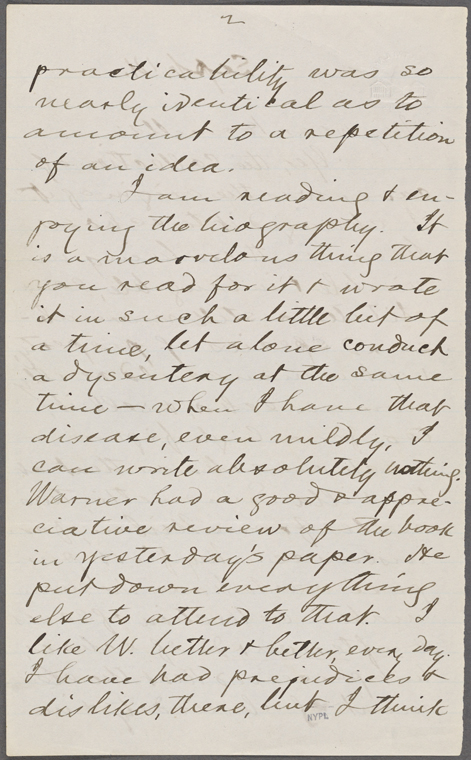 2
practicability was so
nearly identical as to
amount to a repetition
of an idea.
I am reading & en-
joying the biography. It
is a marvelous thing that
you read for it & wrote
it in such a little bit of
a time, let alone conduct
a dysentery at the same
time — when I have that
disease, even mildly, I
can write absolutely nothing.
Warner had a good & appre-
ciative review of the book
in yesterday's paper. He
put down everything
else to attend to that. I
like W. better & better, every day.
I have had prejudices &
dislikes, there, but I think
NYPL